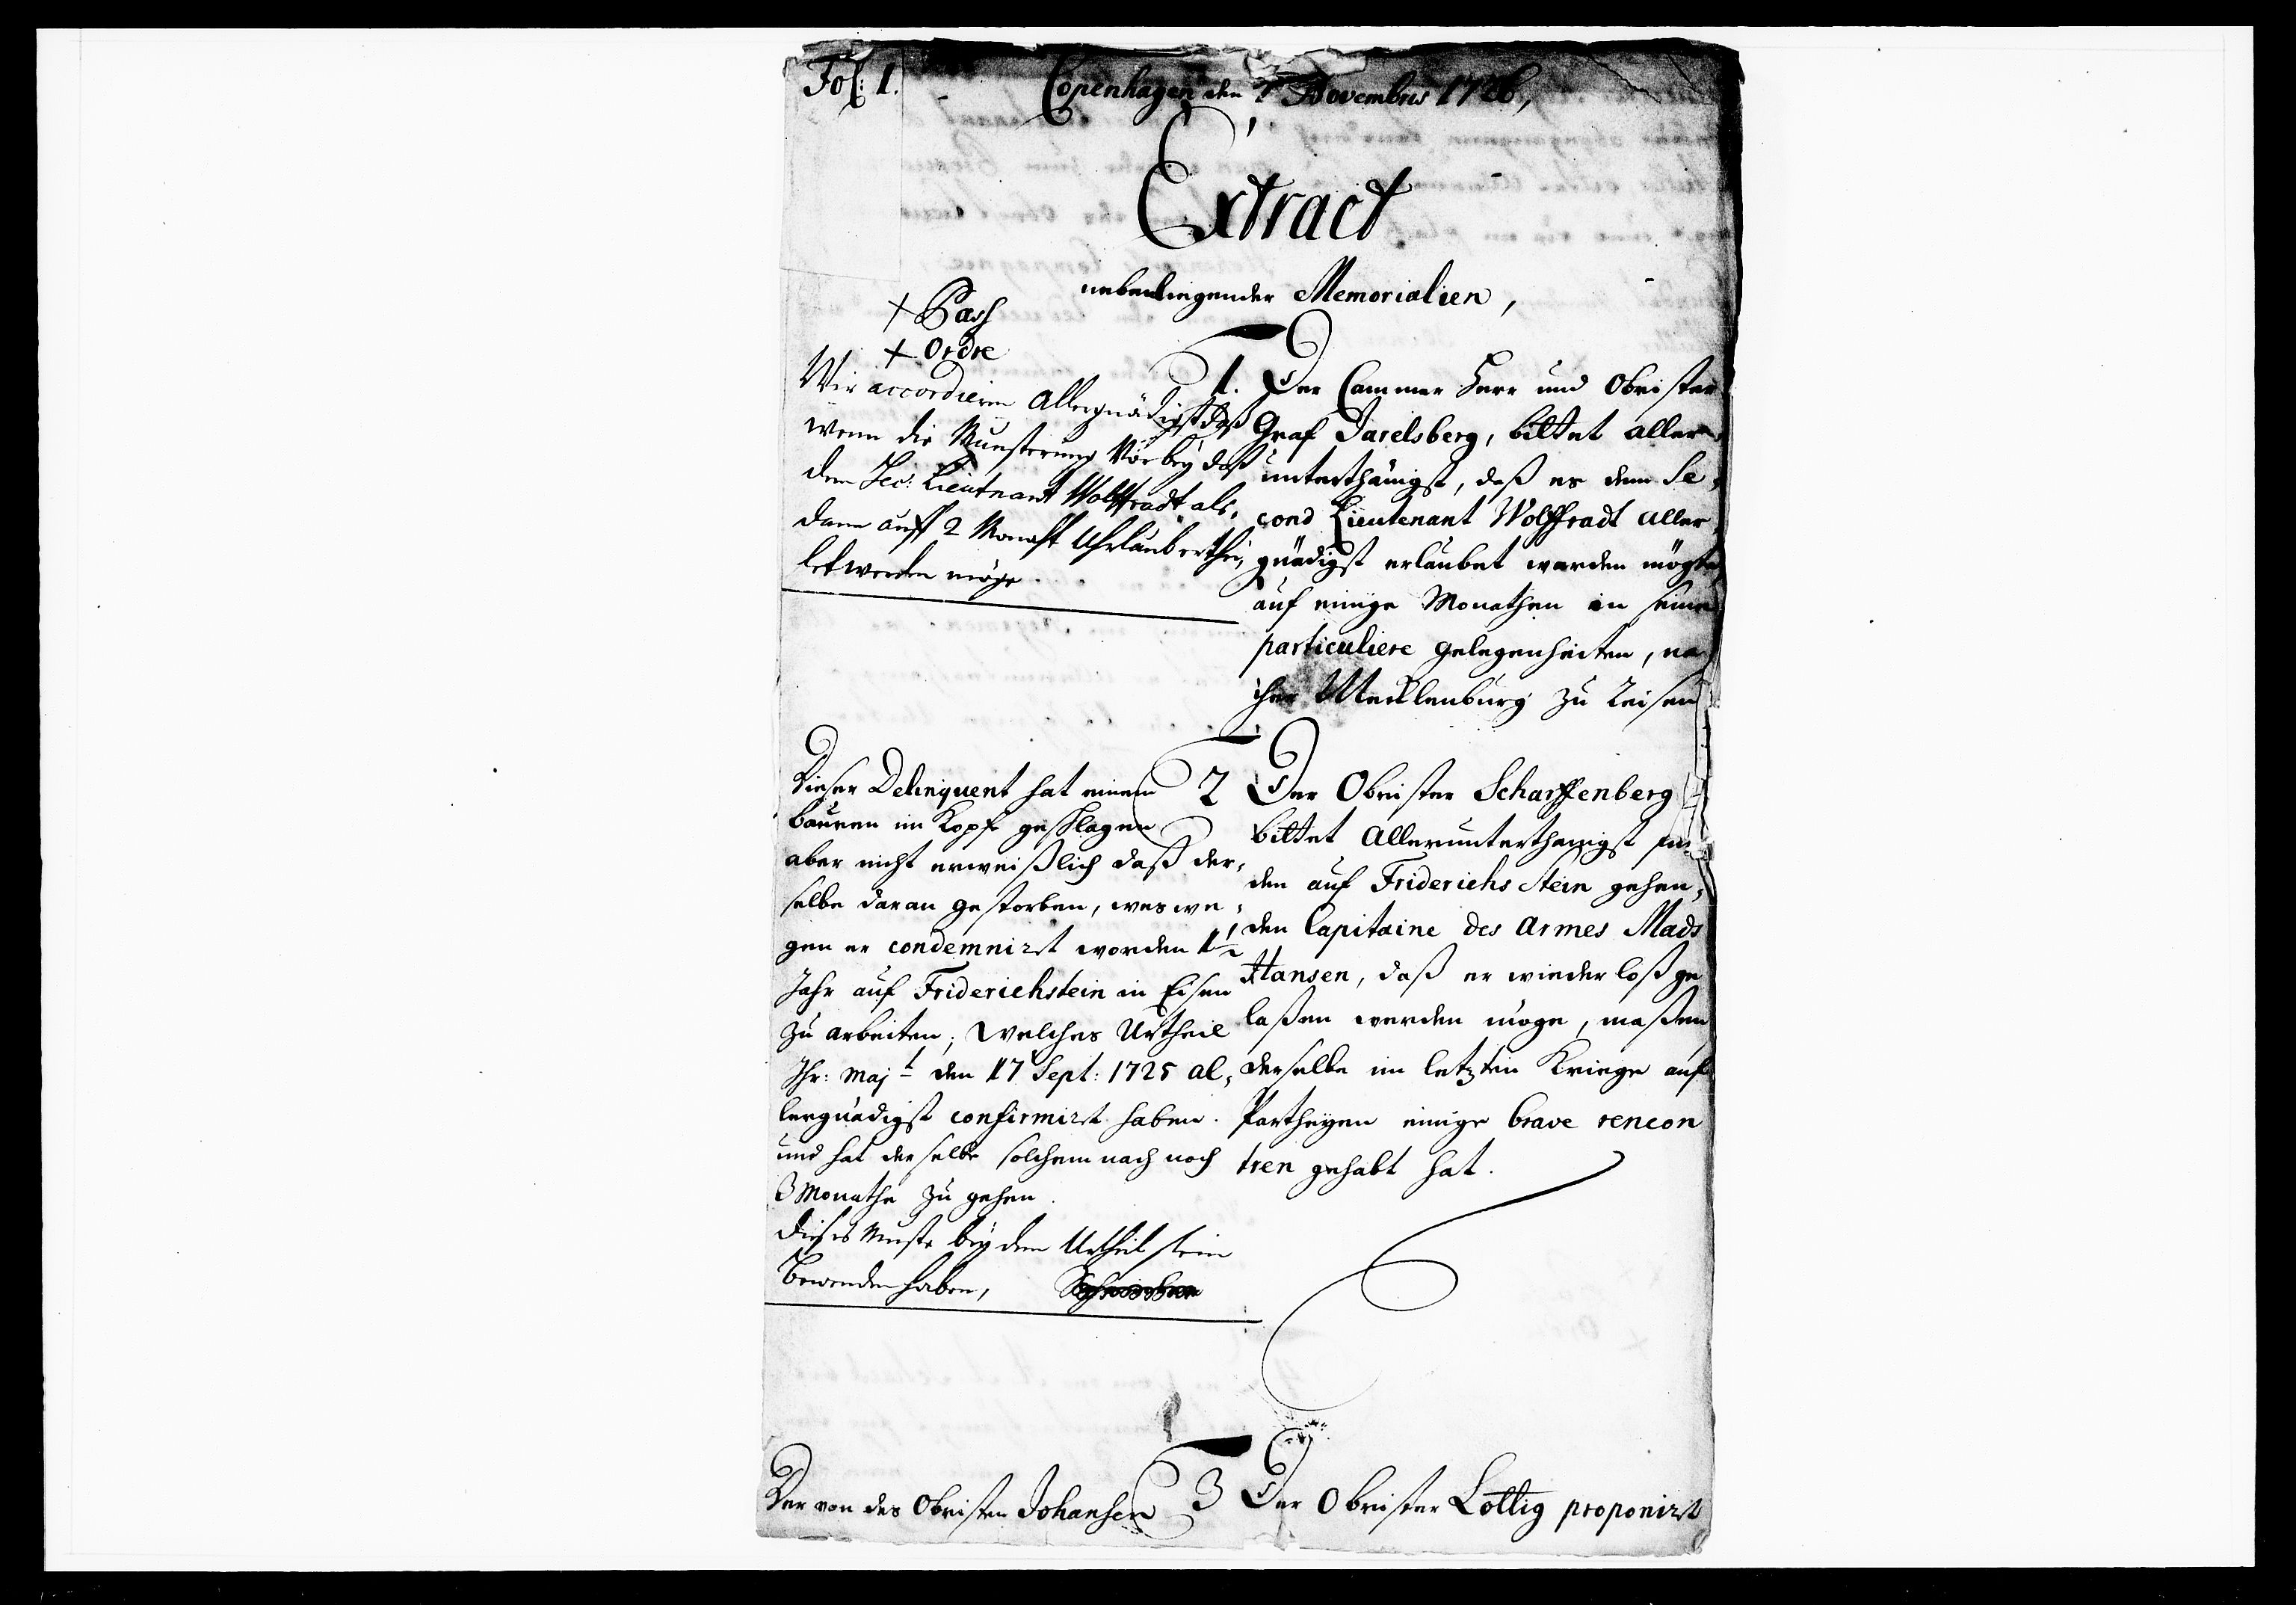 Fol: 1.
Copenhagen den 1 Novembris 1726,
Extract
nebenliegender Memorialien,
+ Pass
+ Ordre
Wir accordieren Allergnädigst daß
wenn die Munsterung Vorbey daß
dem Sec: Lieutnant Wolffradt als,
dann auff 2 Monaht Uhrlaub erthei,
let werden möge.
1. Der Cammer Herr und Obrister
Graf Jarelsberg, bittet aller,
unterthänigst, daß es dem Se,
cond Lieutenant Wolffradt aller,
gnädigst erlaubet werden mögte,
auf einige Monathen in seine
particuliere gelegenheiten, na
cher Mecklenburg zu Reisen
Dieser Delinquent hat einem
bauren im Kopf geschlagen
aber nicht erweißlich daß der,
selbe daran gestorben, weswe,
gen er condemnirt worden 1½
Jahr auf Friderichstein in Eisen
zu arbeiten; welches Urtheil
Ihr: Majt den 17 Sept: 1725 al,
lergnädigst confirmirt haben.
und hat derselbe solchem nach noch
3 Monathe zu gehen.
Dieses Muste bey dem Urtheil sein
Bewenden haben,
2 Der Obrister Scharffenberg
bittet Allerunterthänigst für
den auf Friderichs stein gehen,
den Capitaine des Armes Mads
Hansen, daß er wieder loß ge
laßen werden möge, maßen
derselbe im letzten Kriege auf
Partheyen einige brave rencon
tren gehabt hat.
Der von des Obristen Johansen
3 Der Obrister Lottig proponirt